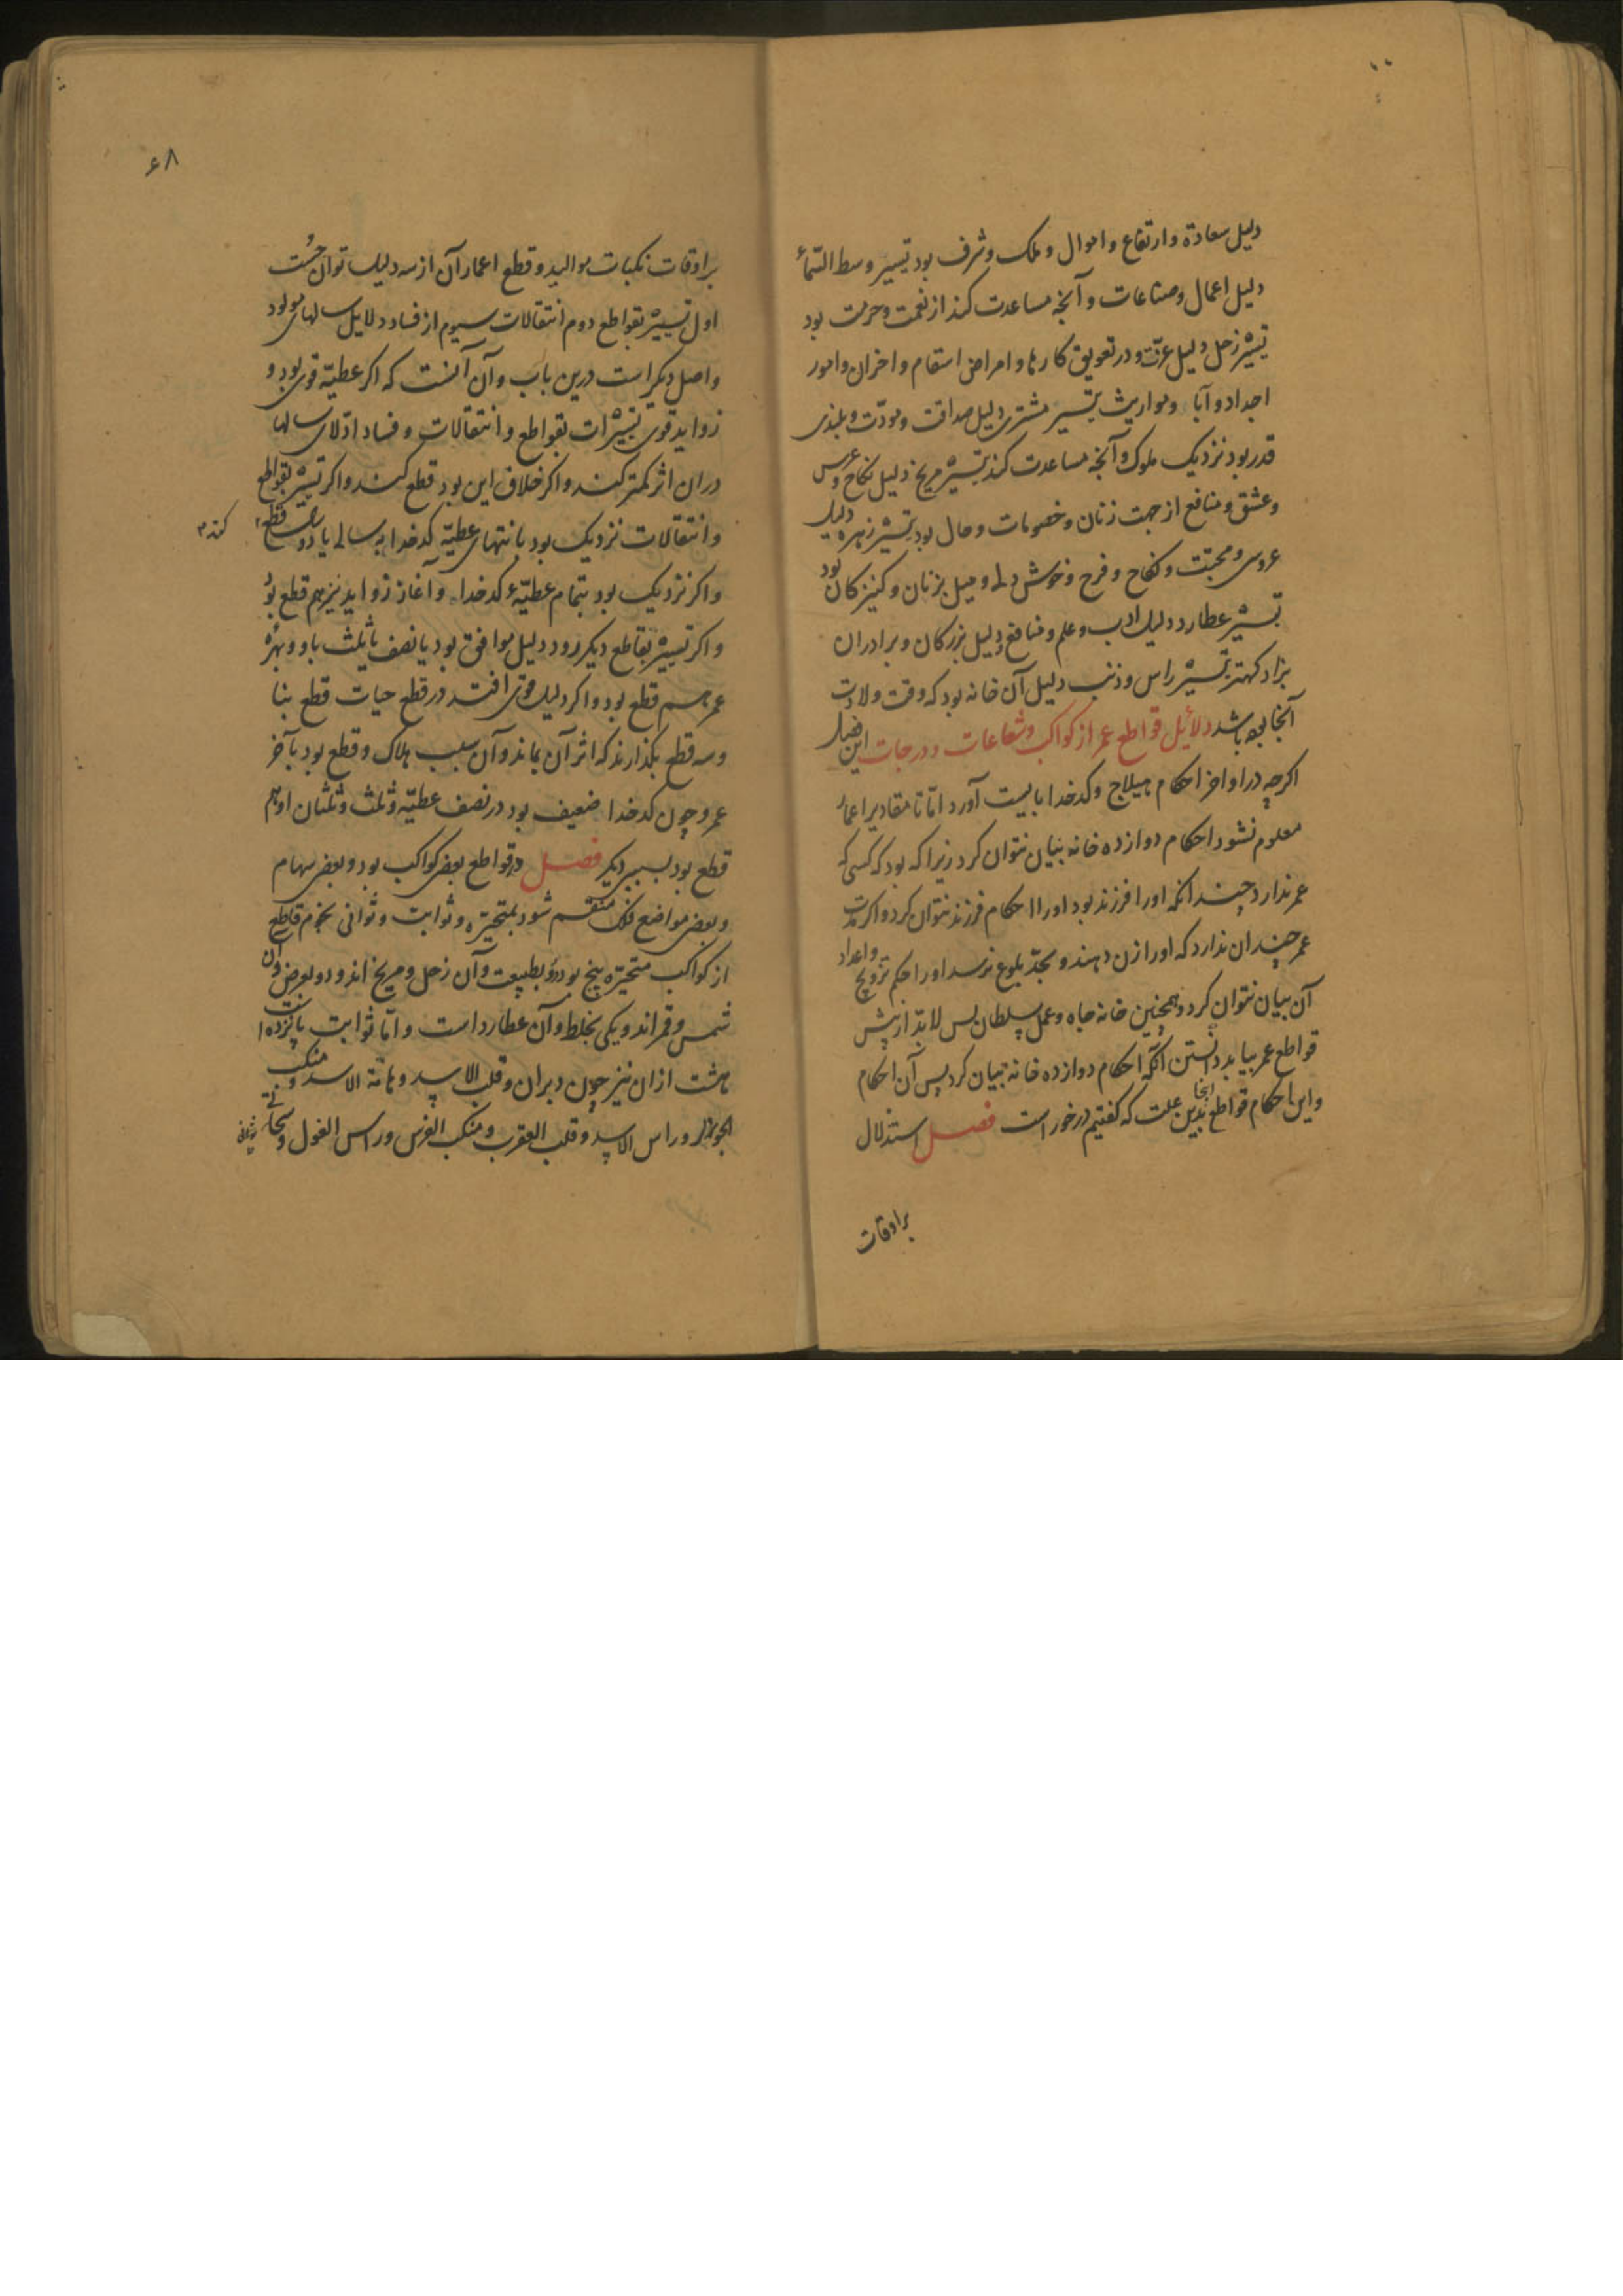 دلیل سعادة وارتفاع واموال وملک وشرف بود تسییر وسط السّماء
دلیل اعمال وصناعات وآنچه مساعدت کند از نعمت وحرمت بود
تسییر زحل دلیل عزّت ودر تعویق کارها وامراض اسقام واحزان وامور
اجداد وآبا ومواریث تسییر مشتری دلیل صداقت ومودّت وبلندی
قدر بود نزدیک ملوک وآنچه مساعدت کند تسییر مریخ دلیل نکاح وعرس
وعشق ومنافع از جهت زنان وخصومات وحال بود تسییر زهره دلیل
عروسی ومحبّت ونکاح وفرح وخوش دلی ومیل بزنان وکنیزکان بود
تسییر عطارد دلیل ادب وعلم ومنافع دلیل بزرکان وبرادران
بزاد کهتر تسییر راس وذنب دلیل آن خانه بود که وقت ولادت
آنجا بوده باشد دلائل قواطع عمر از کواکب وشعاعات ودرجات این فصل
اکرچه در اواخر احکام هیلاج وکدخدا بایست آورد امّا تا مقادیر اعمار
معلوم نشود احکام دوازده خانه بیان نتوان کرد زیرا که بود که کسی که
عمر ندارد چندانکه اورا فرزند بود اورا احکام فرزند نتوان کرد واکر مدت
عمر چندان ندارد که اورا زن دهند وبحدّ بلوغ نرسد اورا حکم تزویج واعداد
آن بیان نتوان کرد وهمچنین خانه جاه وعمل سلطان پس لابدّ از پیش
قواطع عمر بباید دانستن آنکه احکام دوازده خانه بیان کرد پس آن احکام
واین احکام قواطع اینجا بدین علت که کفتیم درخور است فصل استدلال
براوقات
۶۸
براوقات نکبات موالید وقطع اعمار آن از سه دلیل توان جُست
اول تسییر بقواطع دوم انتقالات سیوم از فساد دلایل سالهای مولود
واصل دیکر است درین باب وآن آنست که اکر عطیّه قوی بود و
زواید قوی تسییرات بقواطع وانتقالات وفساد ادلای سالها
دران اثر کمتر کنند واکر خلاف این بود قطع کنند واکر تسییر بقواطع
وانتقالات نزدیک بود بانتهای عطیّه کدخدا به سالی یا دو سال قطع کند
واکر نزدیک بود بتمام عطیّهٔ کدخدا وآغاز زواید نیز هم قطع بود
واکر تسییر بقاطع دیکر رود دلیل موافق بود یا نصف یا ثلث باو وبهرهٔ
عمر هم قطع بود واکر دلیل قوی افتد در قطع حیات قطع بنا
وسه قطع بکذارند که اثر آن بماند وآن سبب هلاک وقطع بود بآخر
عمر وچون کدخدا ضعیف بود در نصف عطیّه وثلث وثلثان او هم
قطع بود بسببی دیکر فصل در قواطع بعضی کواکب بود وبعضی سهام
وبعضی مواضع فلک منقسم شود بمتحیّره وثوابت وثوانی نجوم قاطع
از کواکب متحیّره پنج بود دو بطبیعت وآن زحل ومریخ اند ودو بعرض وآن
شمس وقمر اند ویکی بخلط وآن عطارد است وامّا ثوابت پانزده است
هشت ازان نیز چون دبران وقلب الاسد وهامة الاسد ومنکب
الجوزا وراس الاسد وقلب العقرب ومنکب الفرس وراس الغول وسحابی